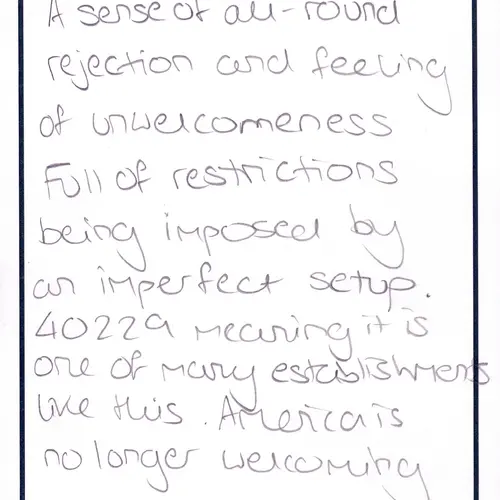 A sense of all-round
rejection and feeling
of unwelcomeness
Full of restrictions
being imposed by
an imperfect setup.
40229 meaning it is
one of many establishments
like this. America is
no longer welcoming